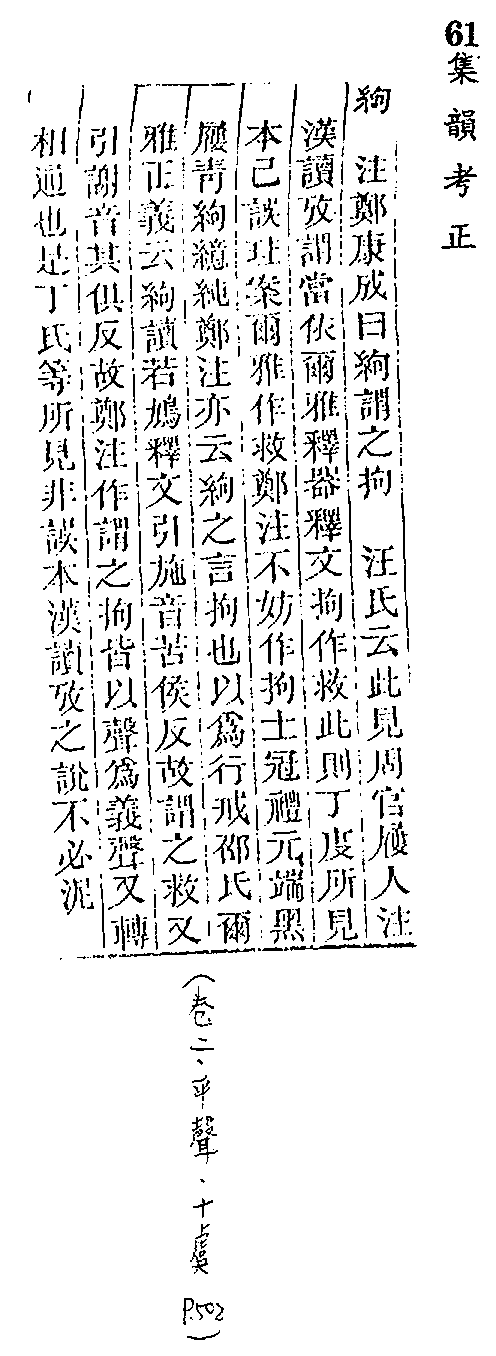 61
集韻考正
絇
注鄭康成曰絇謂之拘　汪氏云此見周官屨人注
漢讀攷謂當依爾雅釋器釋文拘作救此則丁度所見
本已誤珪案爾雅作救鄭注不妨作拘士冠禮元端黑
屨靑絇繶純鄭注亦云絇之言拘也以爲行戒邵氏爾
雅正義云絇讀若鳩釋文引施音苦侯反故謂之救又
引謝音其俱反故鄭注作謂之拘皆以聲爲義聲又轉
相通也是丁氏等所見非誤本漢讀攷之說不必泥
(卷二、平聲、十虞 P.502)